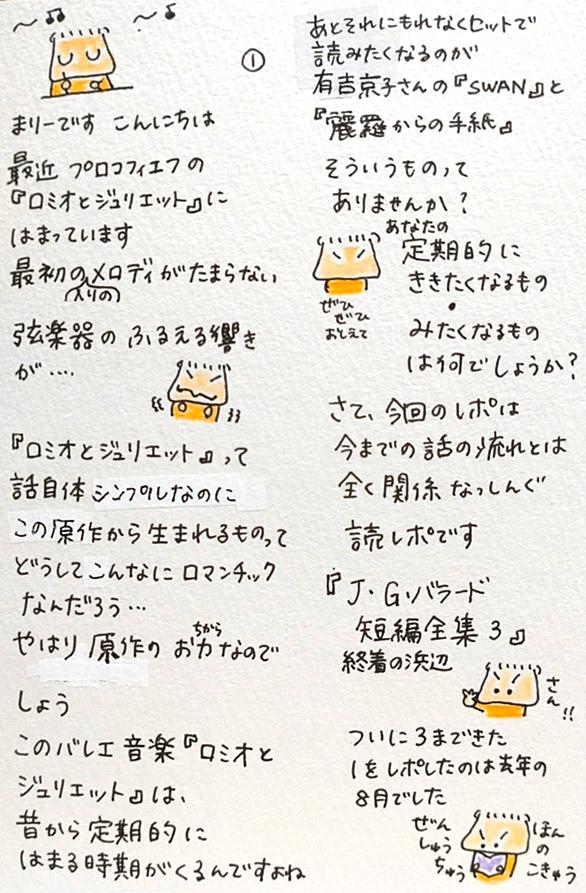 ①
まりーです こんにちは
最近 プロコフィエフの
『ロミオとジュリエット』に
はまっています
最初の入りのメロディがたまらない
弦楽器の ふるえる響き
が‥‥
『ロミオとジュリエット』って
話自体 シンプルなのに
この原作から生まれるものって
どうしてこんなに ロマンチック
なんだろう…
やはり 原作の お力なので
ちから
しょう
このバレエ音楽『ロミオと
ジュリエット』は、
昔から 定期的に
はまる時期がくるんですよね
あとそれにもれなくセットで
読みたくなるのが
有吉京子さんの『SWAN』と
『麗羅からの手紙』
そういうものって
ありませんか?
あなたの
定期的に
ききたくなるもの
・
みたくなるもの
は何でしょうか?
ぜひ
ぜひ
おしえて
さて、今回のレポは
今までの話の流れとは
全く関係なっしんぐ
読レポです
『J・G・バラード
短編全集3』
終着の浜辺
さん
!!
ついに3まできた
1をレポしたのは去年の
8月でした
ぜん
しゅう
ちゅう
ほん
の
こきゅう